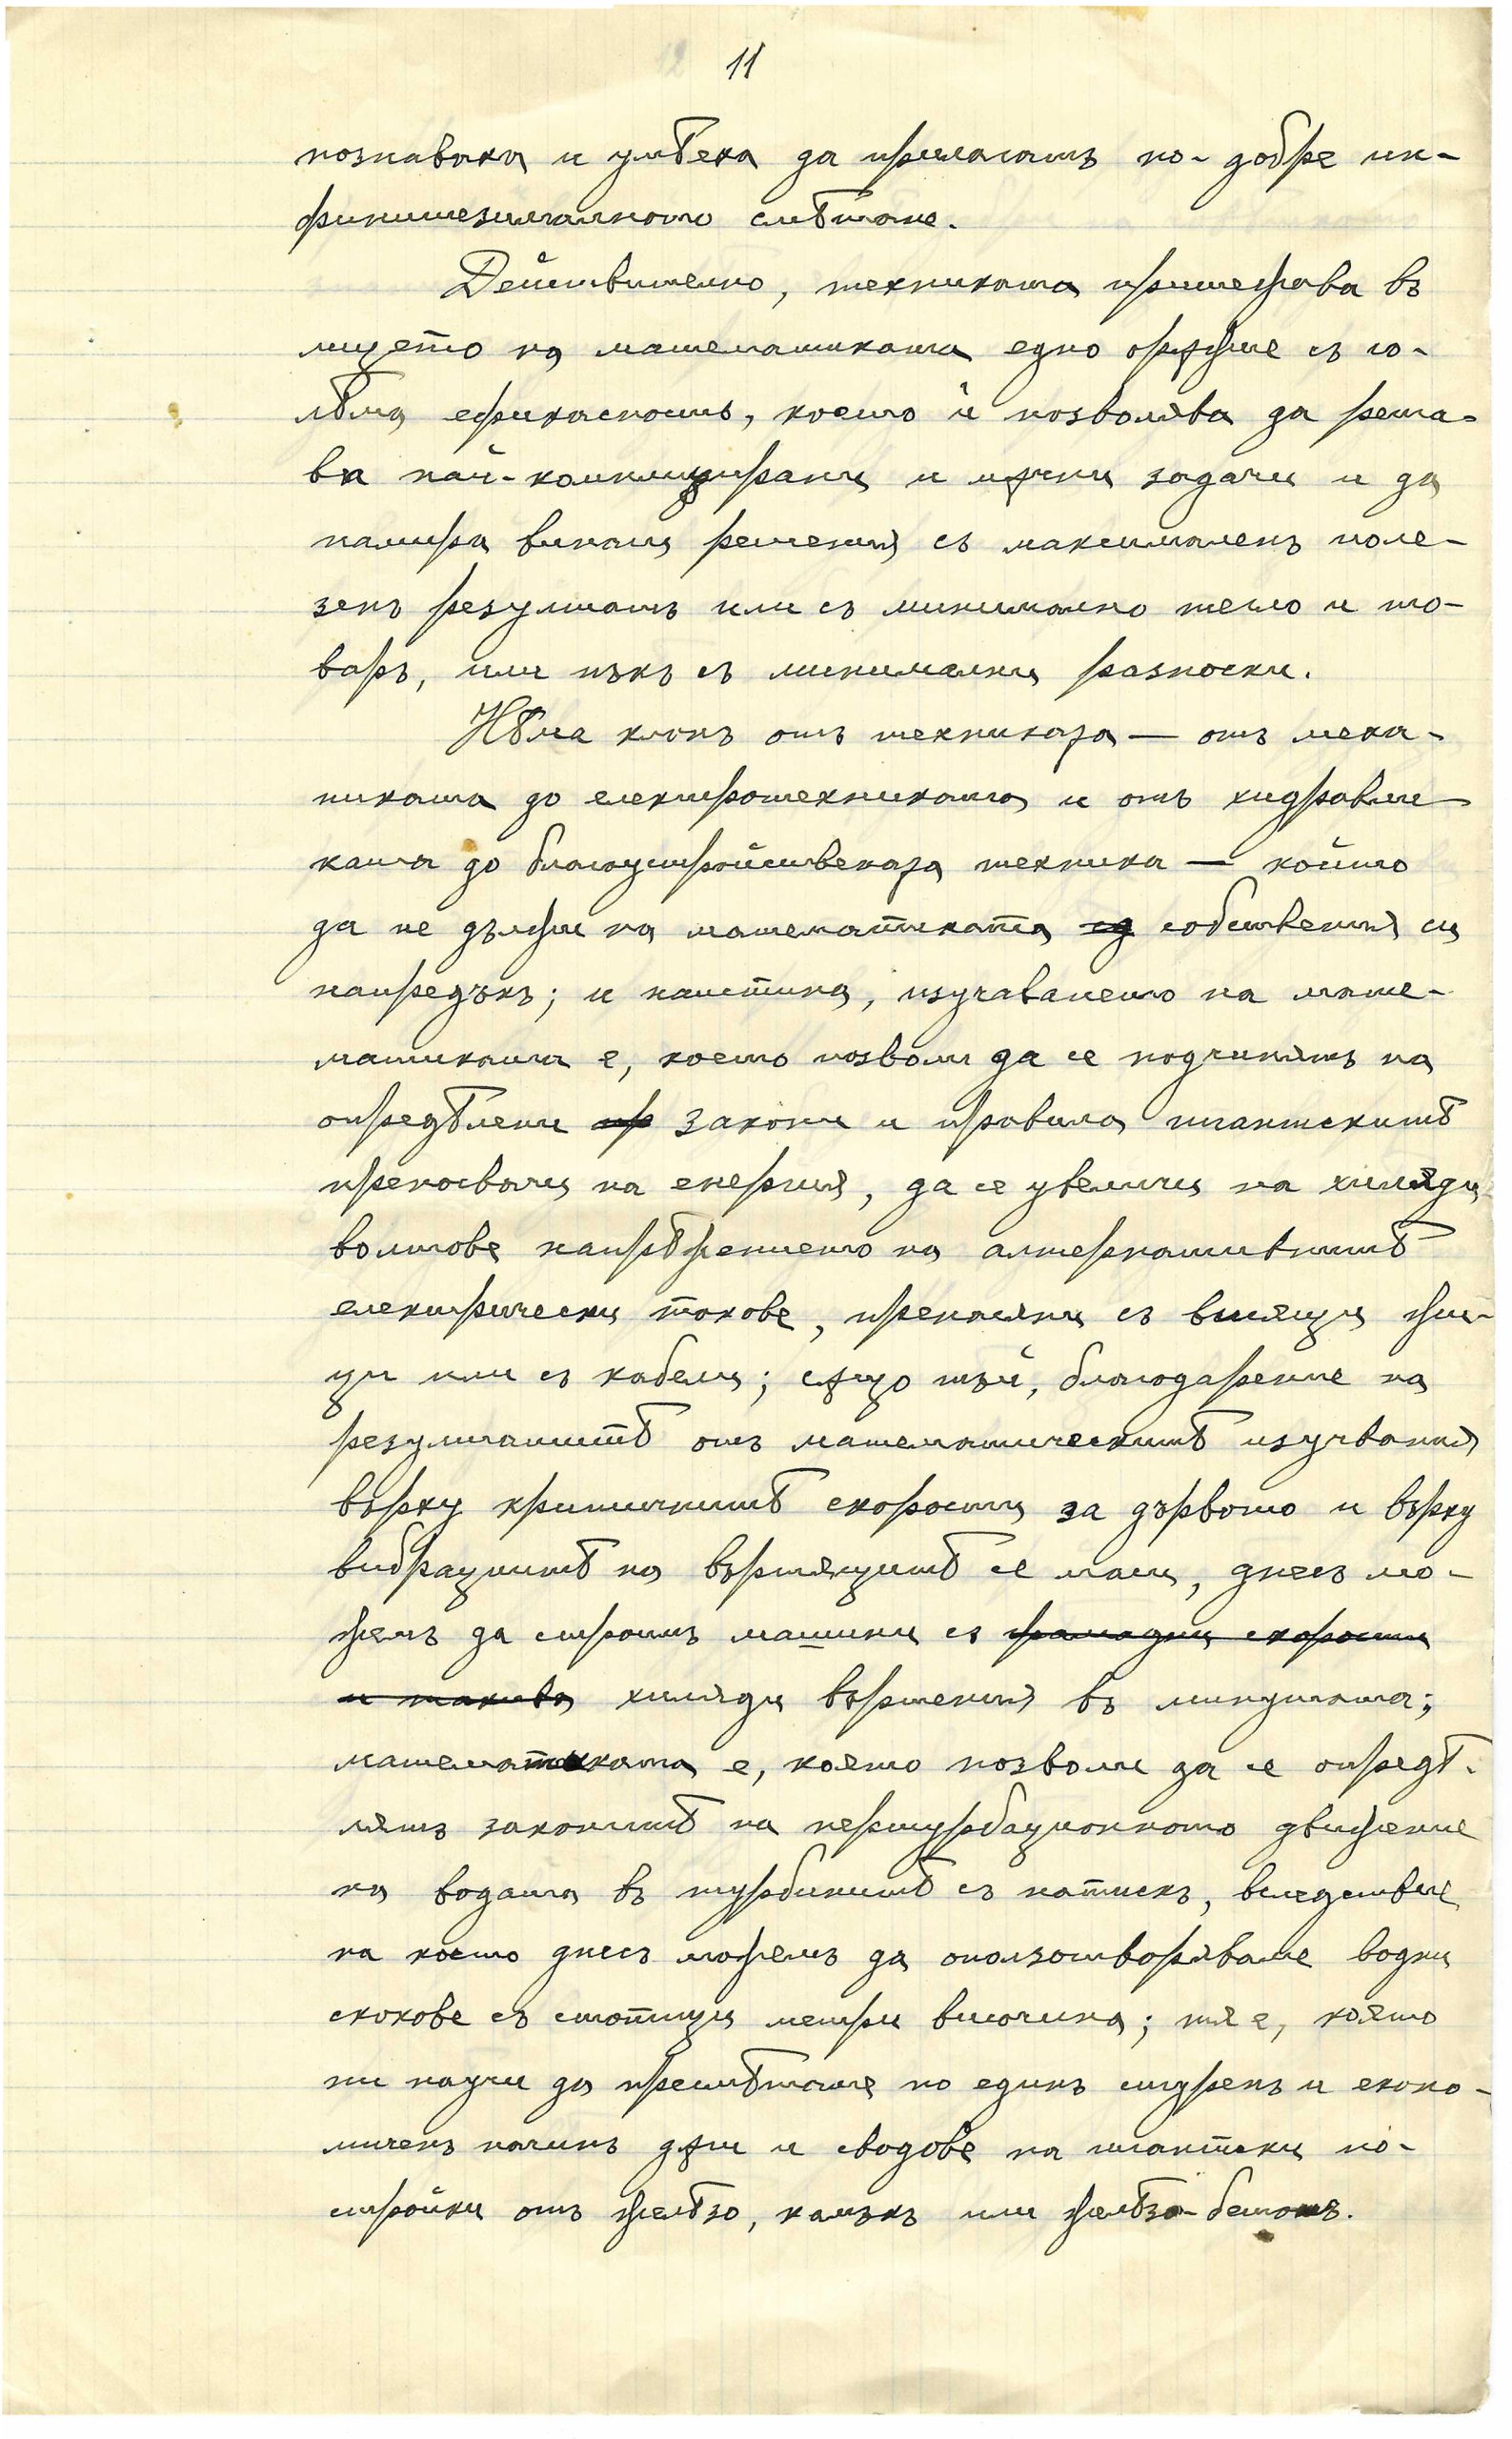 11
познаваха и умѣеха да прилагатъ по-добре ин-
финитезималното смѣтане.
Действително, техниката притежава въ
лицето на математиката едно орѫжие съ го-
лѣма ефикасность, което ѝ позволява да реша-
ва най-комплицирани и мѫчни задачи и да
намира винаги решения съ максималенъ поле-
зенъ резултатъ или съ минимално тегло и то-
варъ, или пъкъ съ минимални разноски.
Нѣма клонъ отъ техниката — отъ меха-
никата до електротехниката и отъ хидравли-
ката до благоустройствената техника — който
да не дължи на математиката собствения си
напредъкъ; и наистина, изучаването на мате-
матиката е, което позволи да се подчинятъ на
опредѣлени законы и правила гигантскитѣ
преносвачи на енергия, да се увеличи на хиляди
волтове напрѣжението на алтернативнитѣ
електрически токове, пренасяни съ висящи жи-
ци или съ кабели; сѫщо тъй, благодарение на
резултатитѣ отъ математическитѣ изучвания
върху критичнитѣ скорости за дървото и върху
вибрациитѣ на въртящитѣ се маси, днесъ мо-
жемъ да строимъ машини съ грамадни скорости
и такива хиляди въртения въ минутата;
математиката е, която позволи да се опредѣ-
лятъ законитѣ на пертурбационното движение
на водата въ турбинитѣ съ натискъ, вследствие
на което днесъ можемъ да оползотворяваме водни
скокове съ стотици метри височина; тя е, която
ни научи да пресмѣтаме по единъ сигуренъ и еконо-
миченъ начинъ дѫги и сводове на гигантски по-
стройки отъ желѣзо, камъкъ или желѣзо-бетонъ.